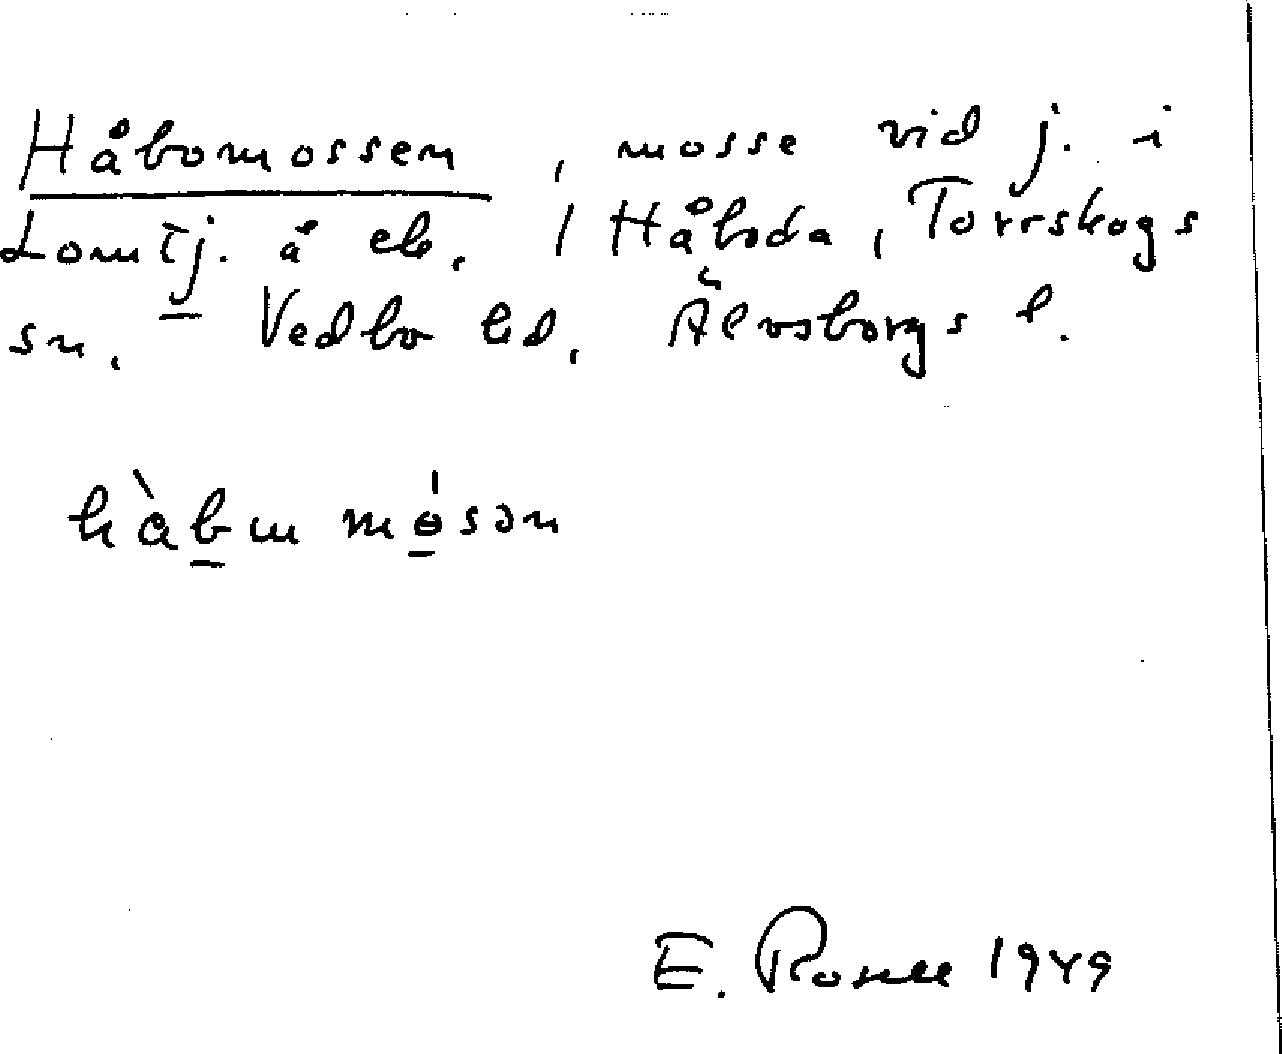 Håbomossen, mosse vid j. i
Lomtj. å eb. i Håbода, Torrskogs
sn. Vedbo hd. Älvsborgs l.
hàbm mósən
E. Rosell 1949